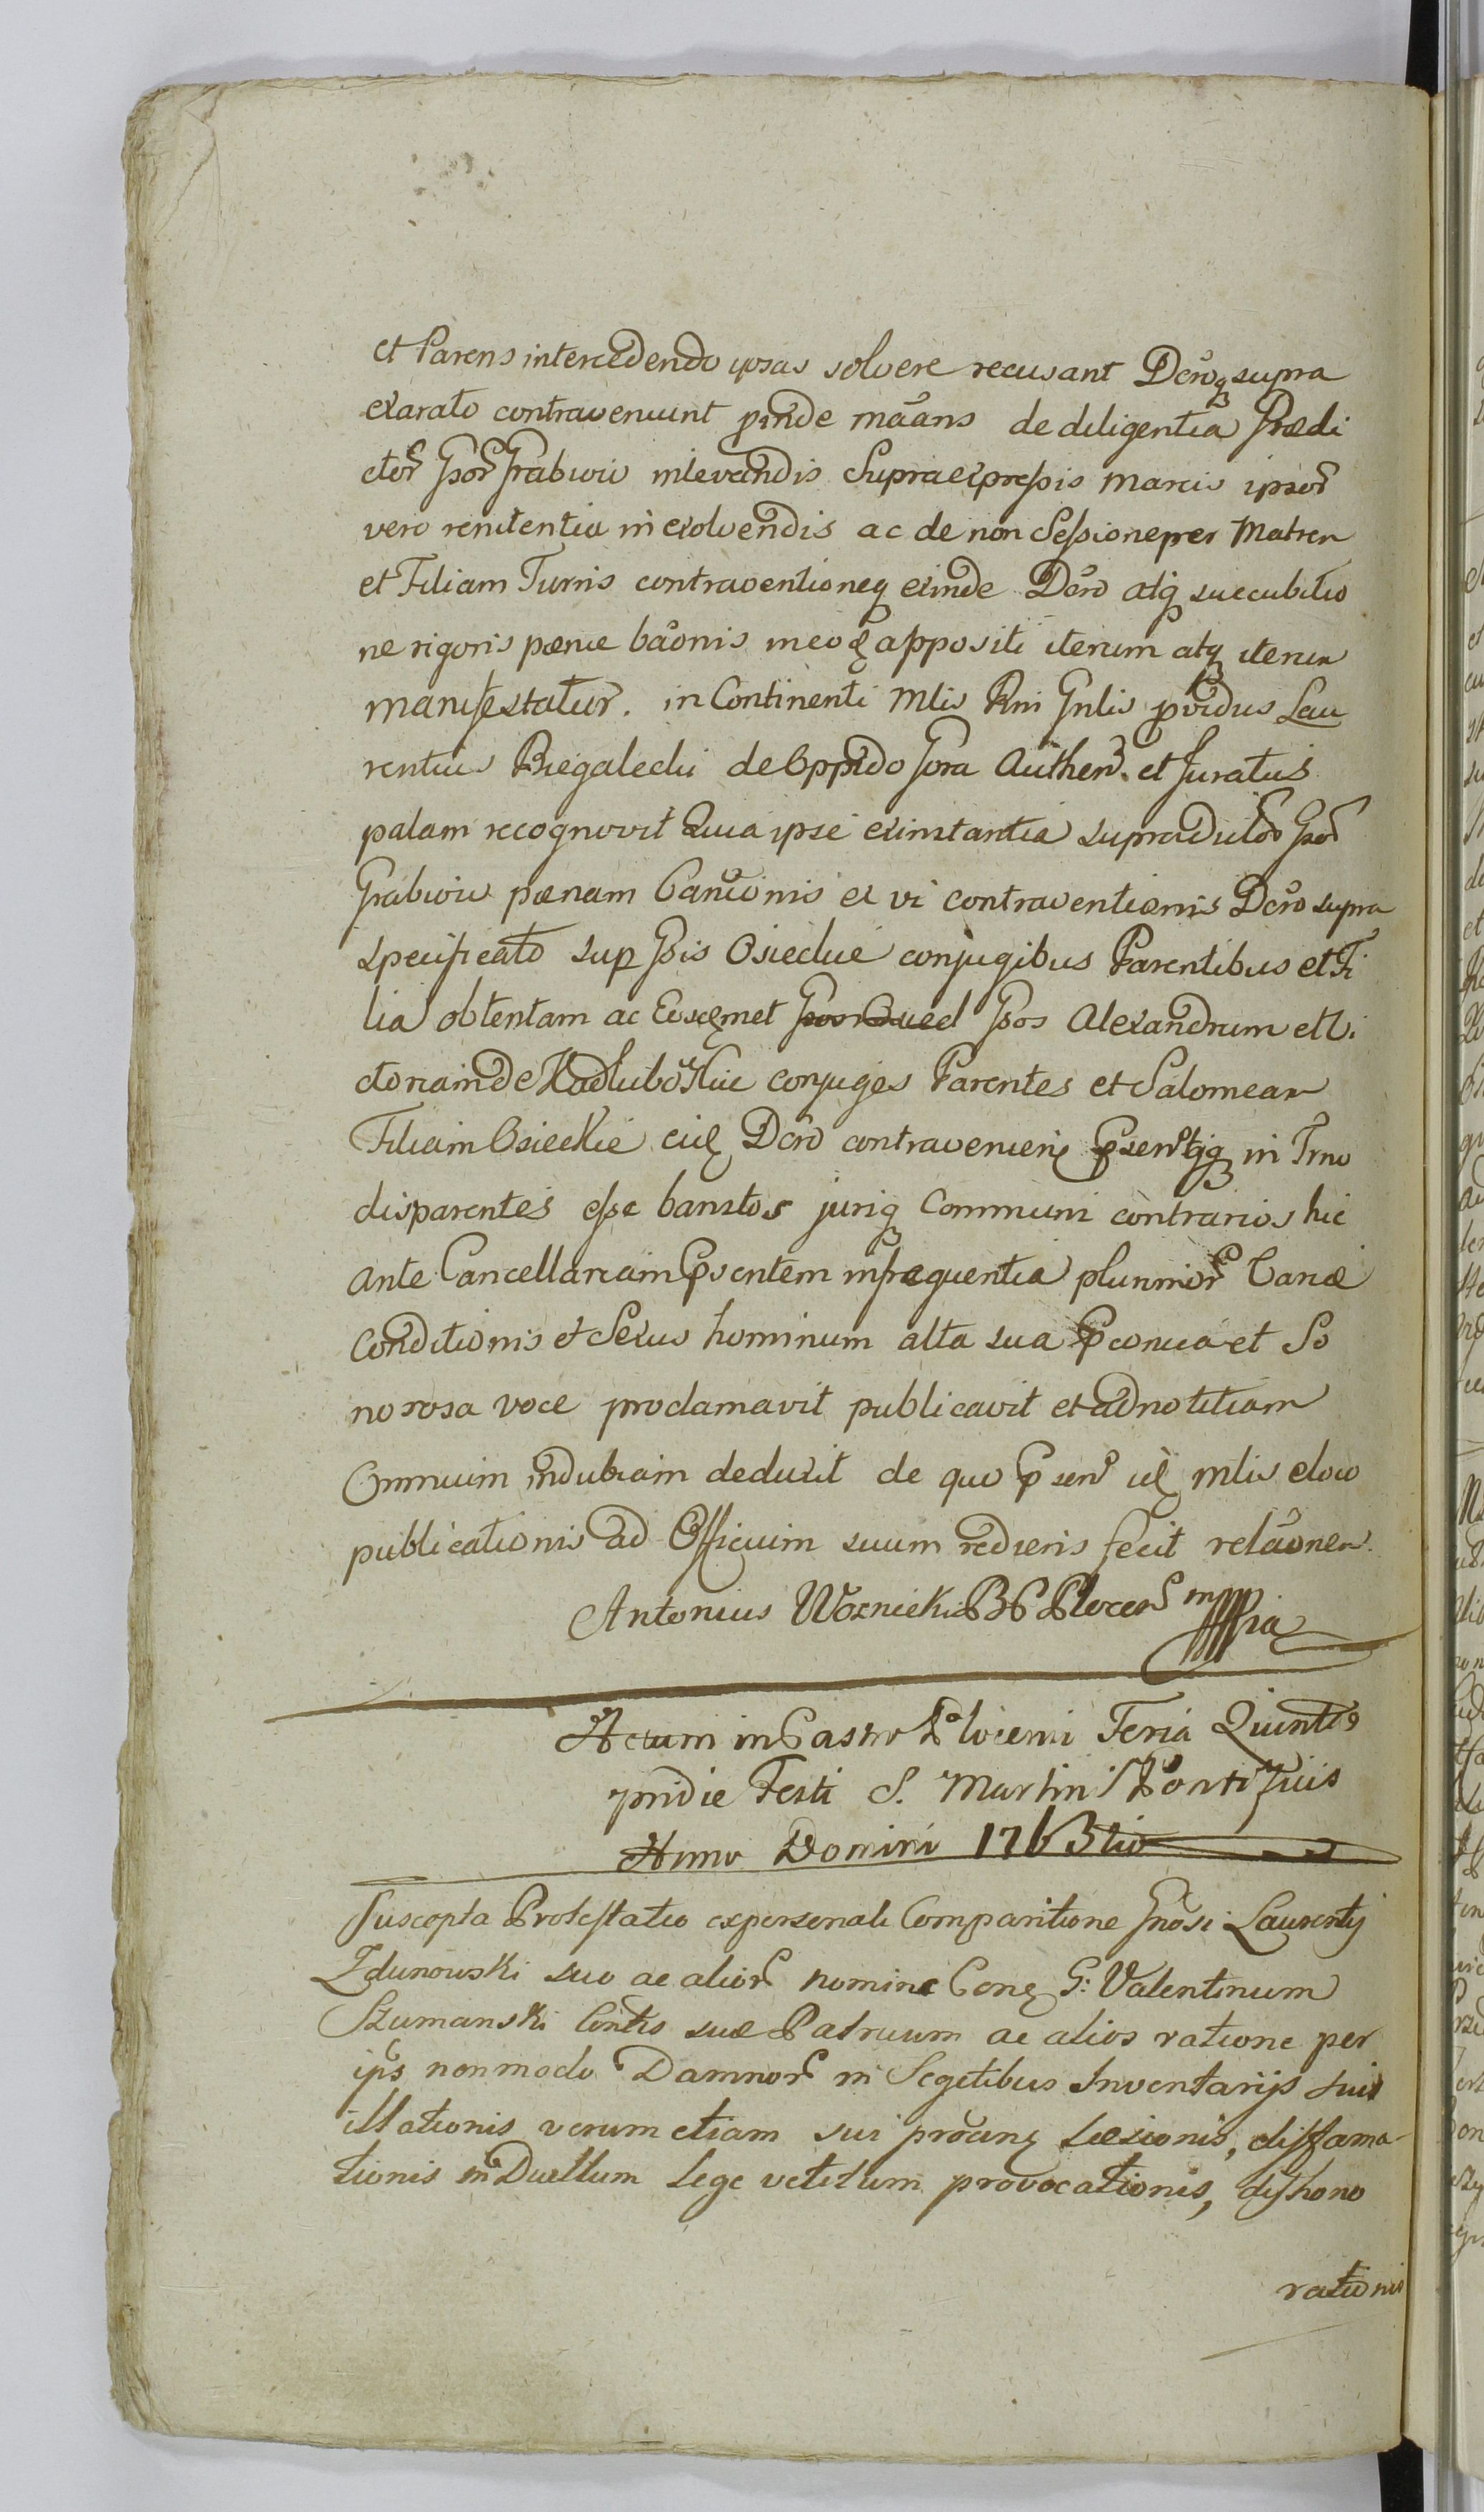 et Parens intercedendo ipsas solvere recusant Dcroq supra
exarato contraveniunt proinde mãans de diligentia Prædi
ctor Gsor Grabwiu inlevandis Supraexpressis Marcis ipsor
vero renitentia in exolvendis ac de non Sessione per Matrem
et Filiam Turris contraventioneq exinde Dcro atq succubitio
ne rigoris pænæ bãonis ineoq appositi iterum atq iterum
manifestatur. in Continenti Mlis Rni Gnlis providus Lau
rentius Biegalecki de Oppido Gora Authen. et Juratus
palam recognovit Quia ipse exinstantia supradictor Gsor
Grabwiu pænam Bannionis ex vi contraventionis Dcro supra
specificato sup Gsis Osieckie conjugibus Parentibus et Fi
lia obtentam ac Eosqmet Gsos Alexandrum et Vi
ctoriam de Kadlubowskie conjuges Parentes et Salomeam
Filiam Osieckie eiq Dcro contravenien psentqq in Trno
disparentes esse banitos juriq Communi contrarios hic
ante Cancellariam Psentem infrequentia plurimor Variæ
Conditionis et Sexus hominum alta sua pconica et So
norosa voce proclamavit publicavit et ad notitiam
Omnium indubiam deduxit de quo psen iq mlis eloco
publicationis ad Officium suum rediens fecit relãonem.
Antonius Woznicki B P Plocen mppia
Actum in Castro Plocensi Feria Quinta
pridie Festi S. Martini Pontificis
Anno Domini 1763tio
Suscepta Protestatio expersonali Comparitione Gnosi Laurentij
Zdunowski suo ac alior nomine Conq G: Valentinum
Szumanski Contis suæ Patruum ac alios ratione per
ips nonmodo Damnor in Segetibus Inventarijs suis
illationis verum etiam sui procinq Læsionis, diffama-
tionis in Duellum Lege vetitum provocationis, dishono
rationis